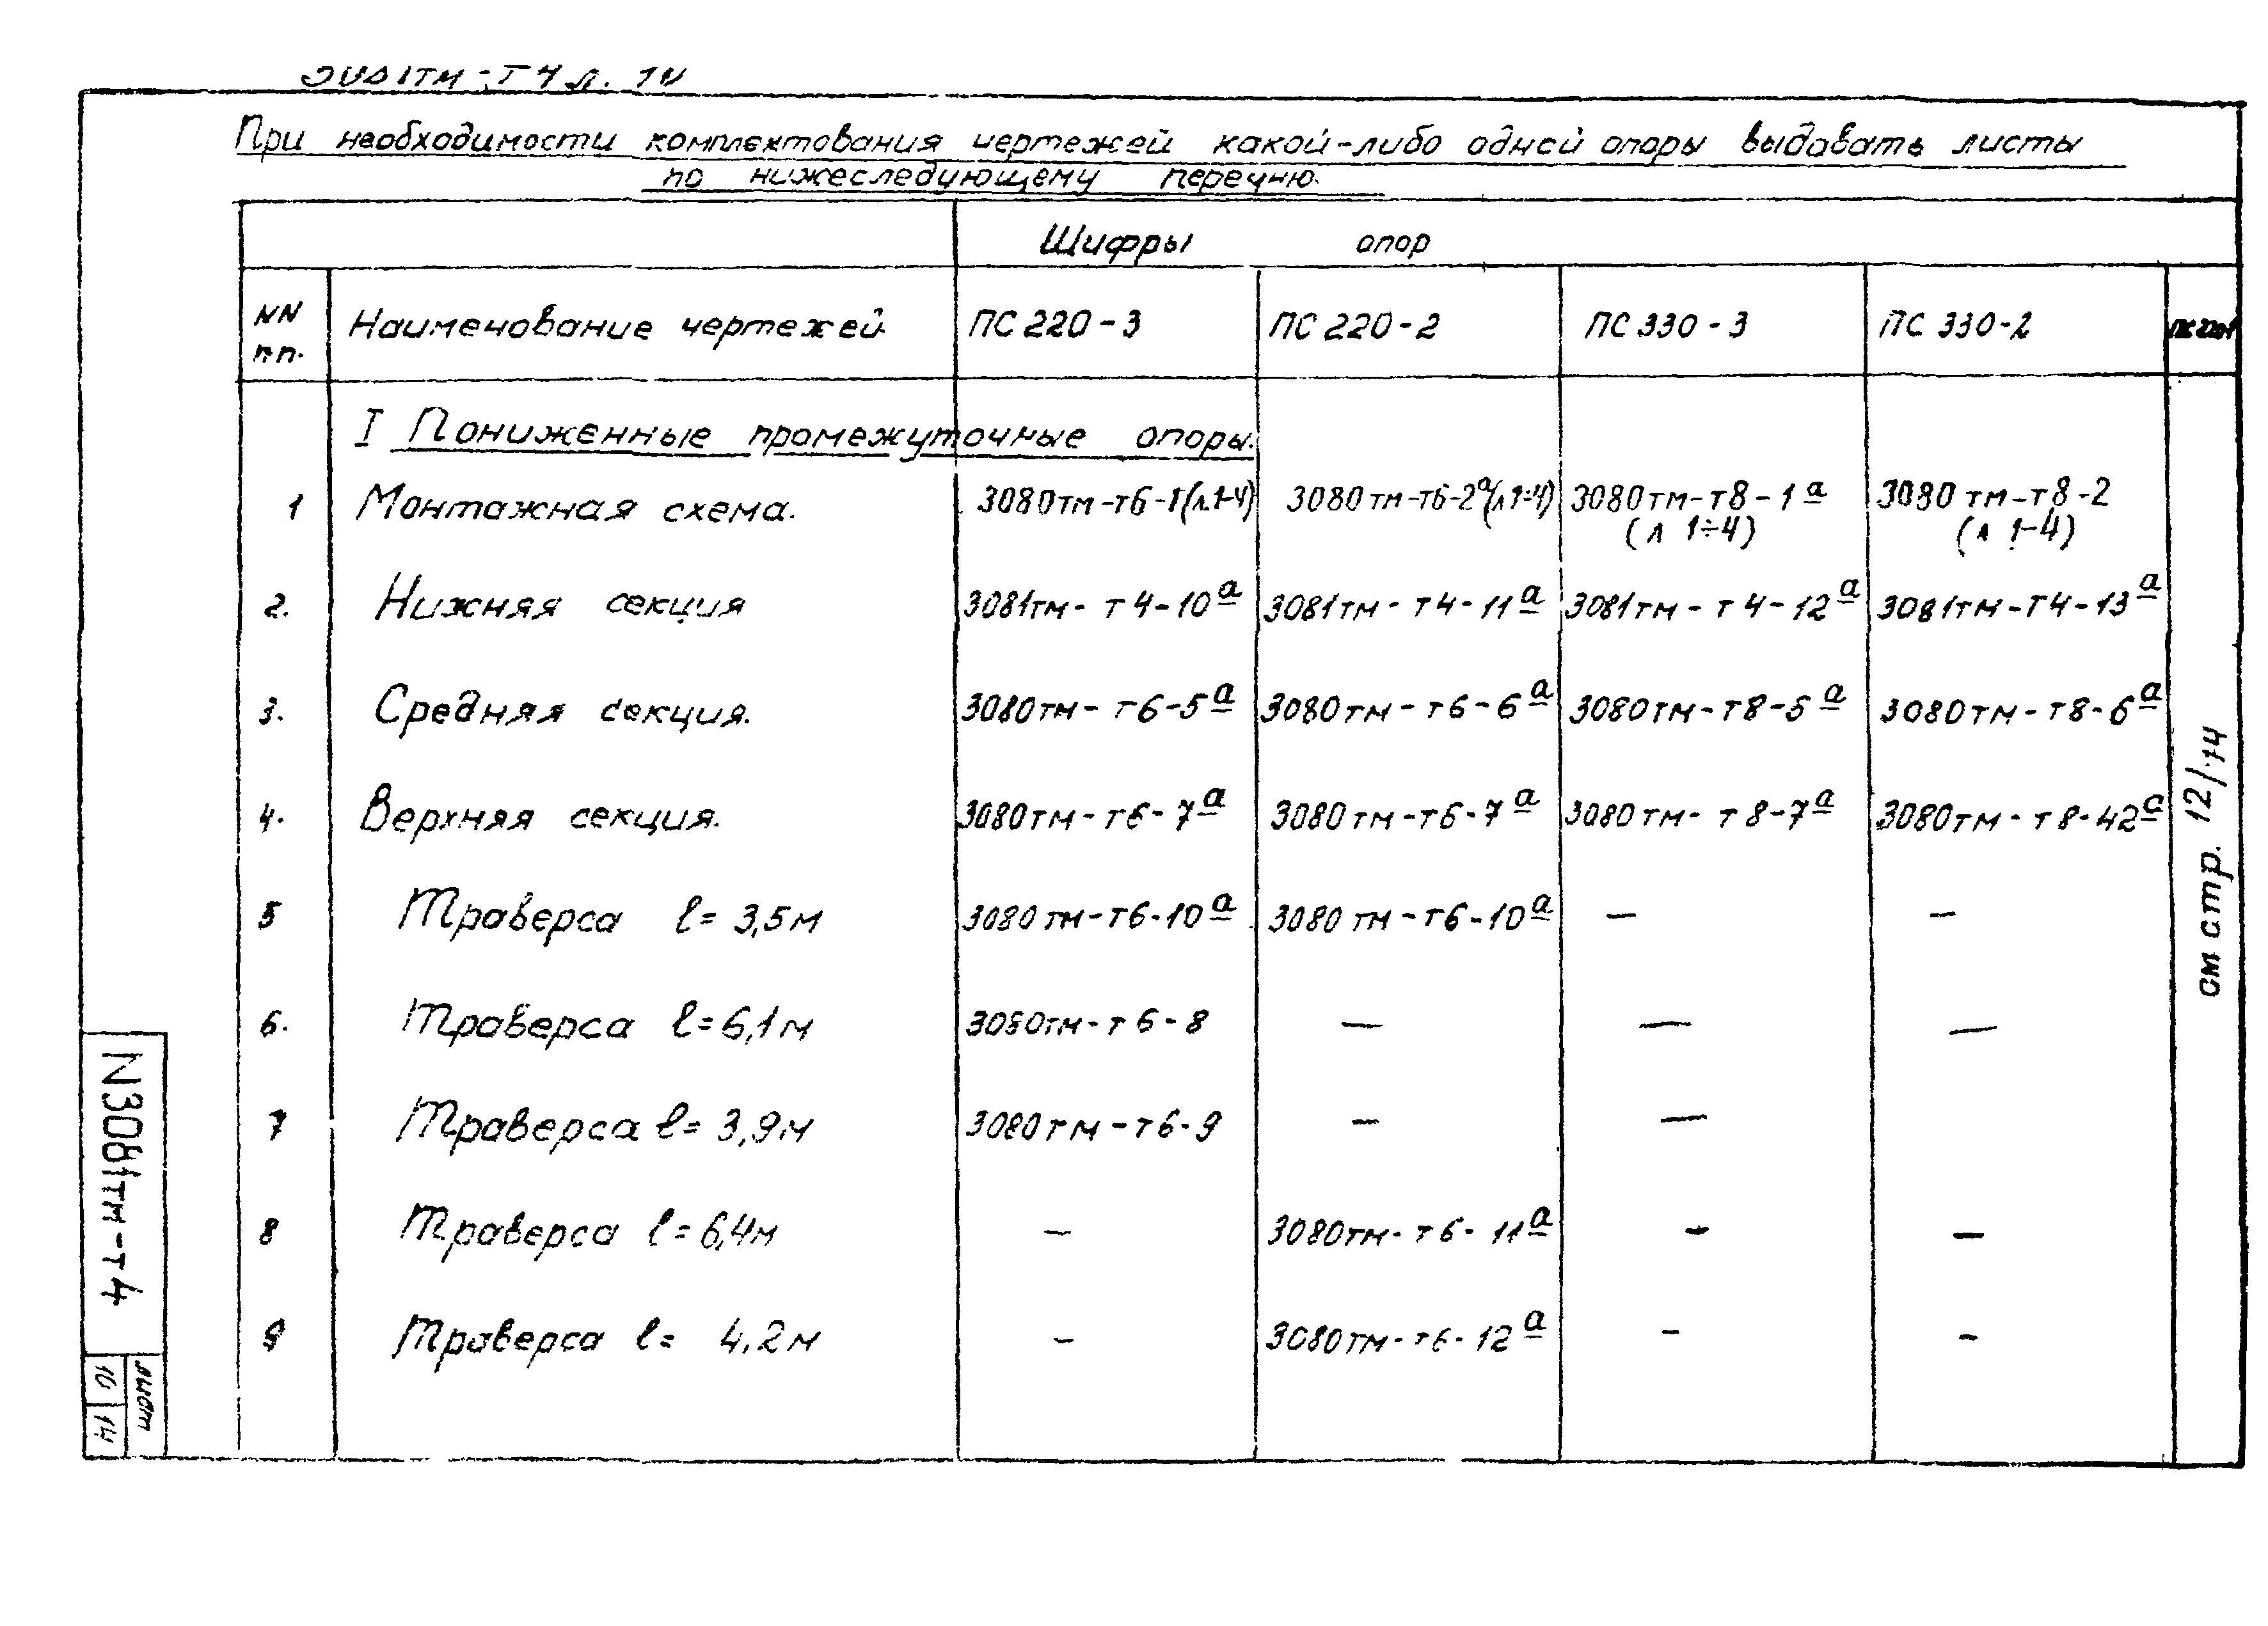 При необходимости комплектования чертежей какой-либо одной опоры выдавать листы
по нижеследующему перечню.
Шифры опор
NN пп. Наименование чертежей ПС 220-3 ПС 220-2 ПС 330-3 ПС 330-2
I Пониженные промежуточные опоры.
1 Монтажная схема. 3080тм-т6-1(л.1-4) 3080тм-т6-2а(л1÷4) 3080тм-т8-1а (л 1÷4) 3080тм-т8-2 (л 1-4)
2. Нижняя секция 3081тм-т4-10а 3081тм-т4-11а 3081тм-т4-12а 3081тм-т4-13а
3. Средняя секция. 3080тм-т6-5а 3080тм-т6-6а 3080тм-т8-5а 3080тм-т8-6а
4. Верхняя секция. 3080тм-т6-7а 3080тм-т6-7а 3080тм-т8-7а 3080тм-т8-42а
5 Траверса ℓ= 3,5м 3080тм-т6-10а 3080тм-т6-10а — —
6. Траверса ℓ=6,1м 3080тм-т6-8 — — —
7 Траверса ℓ= 3,9м 3080тм-т6-9 — —
8 Траверса ℓ=6,4м — 3080тм-т6-11а — —
9 Траверса ℓ= 4,2м — 3080тм-т6-12а — —
см стр. 12/14
N3081тм-т4
лист
10 14